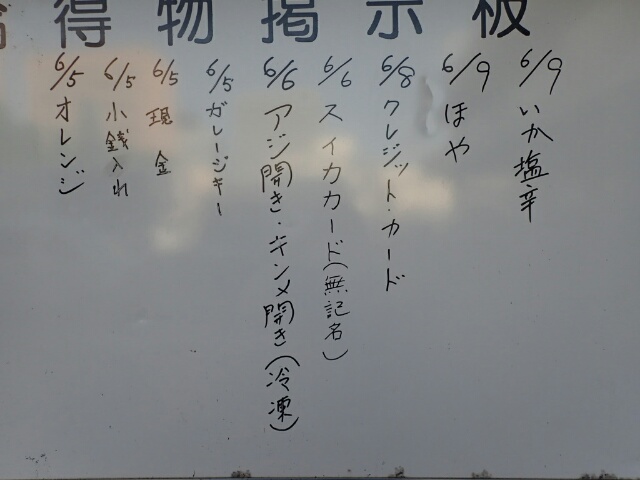 拾得物掲示板
6/9 いか塩辛
6/9 ほや
6/8 クレジット・カード
6/6 スイカカード(無記名)
6/6 アジ開き・キンメ開き(冷凍)
6/5 ガレージキー
6/5 現金
6/5 小銭入れ
6/5 オレンジ